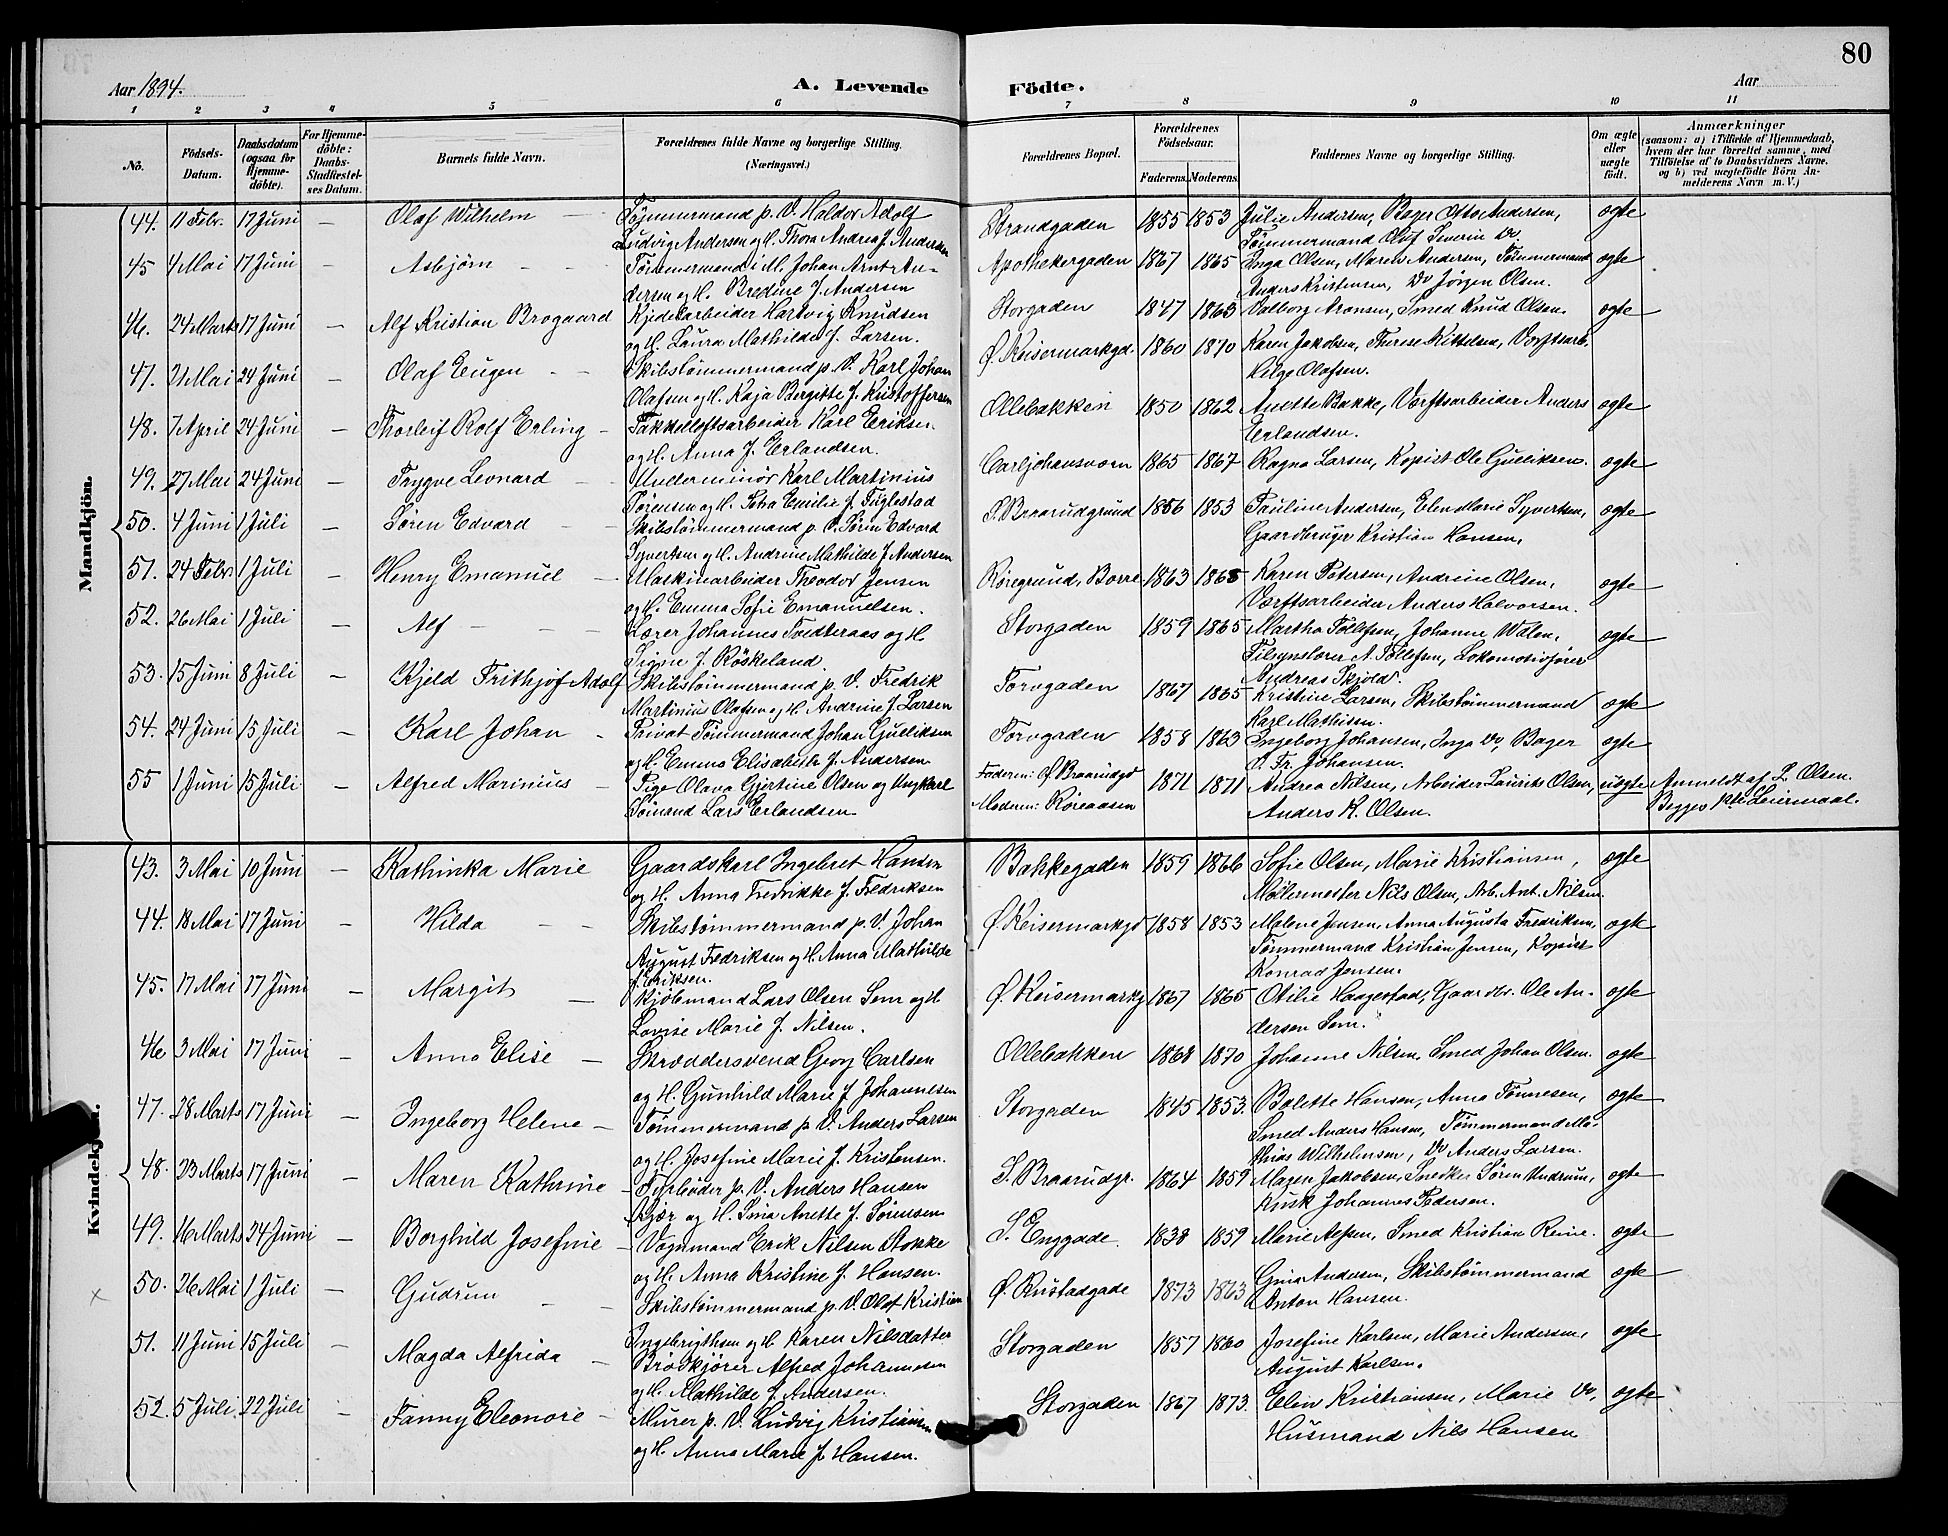 80
Aar 1894.
A. Levende Födte.
Aar
1 2 3 4 5 6 7 8 9 10 11
No.
Födsels-Datum.
Daabsdatum (ogsaa för Hjemme-döbte).
For Hjemme-döbte: Daabs-Stadfæstel-ses Datum.
Barnets fulde Navn.
Forældrenes fulde Navne og borgerlige Stilling. (Næringsvei.)
Forældrenes Bopæl.
Forældrenes Födselsaar.
Faderens. Moderens.
Faddernes Navne og borgerlige Stilling.
Om ægte eller uægte födt.
Anmærkninger
(saasom: a) i Tilfælde af Hjemmedaab, hvem der har forrettet samme, med Tilföielse af to Daabsvidners Navne, og b) ved uægtefödte Börn An-melderens Navn m. V.)
Mandkjön.
44. 11 Febr. 17 Juni — Olaf Wilhelm — Tømmermand p. V. Haldor Adolf
Ludvig Andersen og H. Thora Andrea f. Andersen
Strandgaden 1855 1853 Julie Andersen, Bager Otto Andersen,
Tømmermand Oluf Severin Do. ægte
45 4 Mai 17 Juni — Asbjørn — Tømmermand i M. Johan Arnt An-
dersen og H. Bredine f. Andersen
Apothekergaden 1867 1865 Inga Olsen, Maren Andersen, Tømmermand
Anders Kristensen, Do Jørgen Olsen. ægte
46. 24 Marts 17 Juni — Alf Kristian Brogaard Kjedelarbeider Hartvig Knudsen
og H. Laura Mathilde f. Larsen.
Storgaden 1847 1863 Valborg Aronsen, Smed Knud Olsen. ægte
47. 21 Mai 24 Juni — Olaf Eugen — Skibstømmermand p. V. Karl Johan
Olafsen og H. Kaja Bergitte f. Kristoffersen
Ø. Keisermarkgd. 1860 1870 Karen Jakobsen, Therese Kittelsen, Værftsarb.
Helge Olafsen. ægte
48. 7 April 24 Juni — Thorleif Rolf Erling — Takkelloftsarbeider Karl Eriksen
og H. Anna f. Erlandsen.
Ollebakken 1850 1862 Anette Bakke, Værftsarbeider Anders
Erlandsen. ægte
49. 27 Mai 24 Juni — Trygve Leonard — Underminør Karl Martinius
Sørensen og H. Emilie f. Fuglestad
Carljohansværn 1865 1867 Ragna Larsen, Kopist Ole Gulliksen. ægte
50. 4 Juni 1 Juli — Søren Edvard — Skibstømmermand p. V. Søren Edvard
Syvertsen og H. Andrine Mathilde f. Andersen
S. Braarudgrund 1856 1853 Pauline Andersen, Elen Marie Syvertsen,
Gaardbruger Kristian Hansen. ægte
51. 24 Febr. 1 Juli — Henry Emanuel — Maskinarbeider Theodor Jensen
og H. Emma Sofie Emanuelsen.
Røregrund, Borre 1863 1868 Karen Petersen, Andreine Olsen,
Værftsarbeider Anders Halvorsen. ægte
52. 26 Mai 1 Juli — Alf — Lærer Johannes Tvedteraas og H.
Signe f. Röskeland.
Storgaden 1859 1865 Martha Tollefsen, Johanne Walen,
Tilsynslærer A. Tollefsen, Lokomotivfører
Andreas Skjold. ægte
53. 15 Juni 8 Juli — Kjeld Frithjof Adolf Skibstømmermand p. V. Fredrik
Martinius Olafsen og H. Andrine f. Larsen
Torvgaden 1867 1865 Kristine Larsen, Skibstømmermand
Karl Mathisen. ægte
54. 24 Juni 15 Juli — Karl Johan — Privat Tømmermand Johan Gulliksen
og H. Emma Elisabeth f. Andersen
Torvgaden 1858 1863 Ingeborg Johansen, Inga Do, Bager
Fr. Johansen. ægte
55 1 Juni 15 Juli — Alfred Marinius — Pige Olava Gjertine Olsen og Ungkarl
Sömand Lars Erlandsen
Faderen: Ø Braarudgd
Moderen: Røreaasen 1871 1871 Andrea Nilsen, Arbeider Laurits Olsen,
Anders K. Olsen. uægte Anmeldt af L. Olsen.
Begges 1ste Leiermaal.
Kvindekjön.
43. 3 Mai 10 Juni — Kathinka Marie Gaardskarl Ingebret Hansen
og H. Anna Fredrikke f. Fredriksen
Bakkegaden 1859 1866 Sofie Olsen, Marie Kristiansen,
Malermester Nils Olsen, Arb. Ant. Nilsen. ægte
44. 18 Mai 17 Juni — Hilda — Skibstømmermand p. V. Johan
August Fredriksen og H. Anna Mathilde
f. Eriksen.
Ø. Keisermarkgd 1858 1853 Malene Jensen, Anna Augusta Fredriksen,
Tømmermand Kristian Jensen, Kopist
Konrad Jensen. ægte
45. 17 Mai 17 Juni — Margit — Kjöbmand Lars Olsen Sem og H
Lovise Marie f. Nilsen.
Ø. Keisermarkg 1867 1865 Otilie Haagestad, Gaardbr. Ole An-
dersen Sem. ægte
46 3 Mai 17 Juni — Anna Elise — Skræddersvend Georg Carlsen
og H. Gunhild Marie f. Johannesen
Ollebakken 1868 1870 Johanne Nilsen, Smed Johan Olsen. ægte
47. 28 Marts 17 Juni — Ingeborg Helene — Tømmermand p. V. Anders Larsen
og H. Josefine Marie f. Kristensen.
Storgaden 1845 1853. Bolette Hansen, Anna Tønnesen,
Smed Anders Hansen, Tømmermand Ma-
thias Wilhelmsen, Do Anders Larsen. ægte
48. 23 Marts 17 Juni — Maren Kathrine — Fyrbøder p. V. Anders Hansen
Kjær og H. Sina Anette f. Sørensen
S. Braarudgr. 1864 1859 Maren Jakobsen, Snedker Søren Undrum,
Kusk Johannes Pedersen. ægte
49. 16 Marts 24 Juni — Borghild Josefine — Vognmand Erik Nilsen Stokke
og H. Anna Kristine f. Hansen.
S. Enggade. 1838 1859 Marie Aessen, Smed Kristian Reine. ægte
50. 26 Mai 1 Juli — Gudrun — Skibstømmermand p. V. Olof Kristian
Ingebrigthsen og H Karen Nilsdatter
Ø. Rustadgade 1873 1863 Gina Andersen, Skibstømmermand
Anton Hansen. ægte
51. 11 Juni 15 Juli — Magda Alfrida — Brødkjører Alfred Johannesen
og H. Mathilde f. Andersen.
Storgaden 1857 1860 Josefine Karlsen, Marie Andersen,
August Karlsen. ægte
52. 5 Juli. 22 Juli — Fanny Eleonore — Murer p. V. Ludvig Kristiansen
og H. Anna Marie f. Hansen.
Storgaden 1867 1873. Elen Kristiansen, Marie Do,
Husmand Nils Hansen ægte